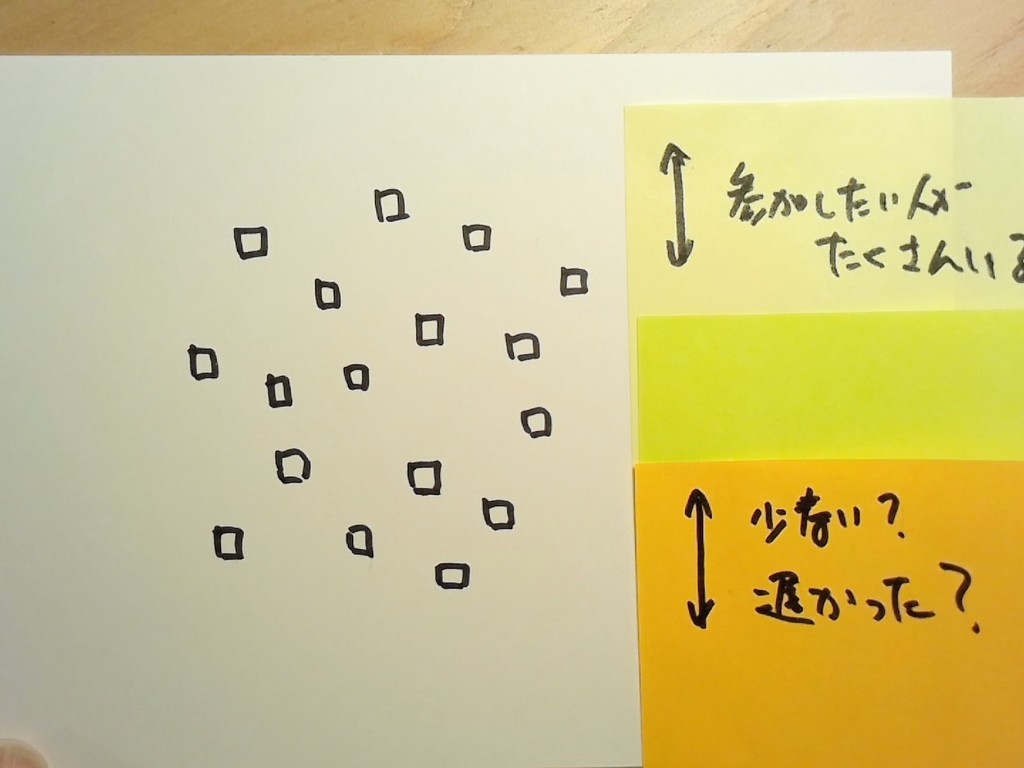 参加したい人が
たくさんいる
少ない?
遅かった?